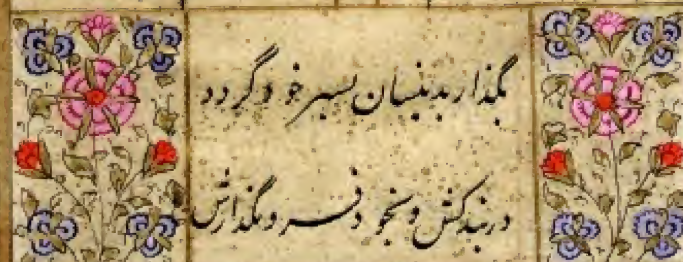 بگذار بدینسان بسر خود گردد
در بند کش و بخود فرو مگذارش